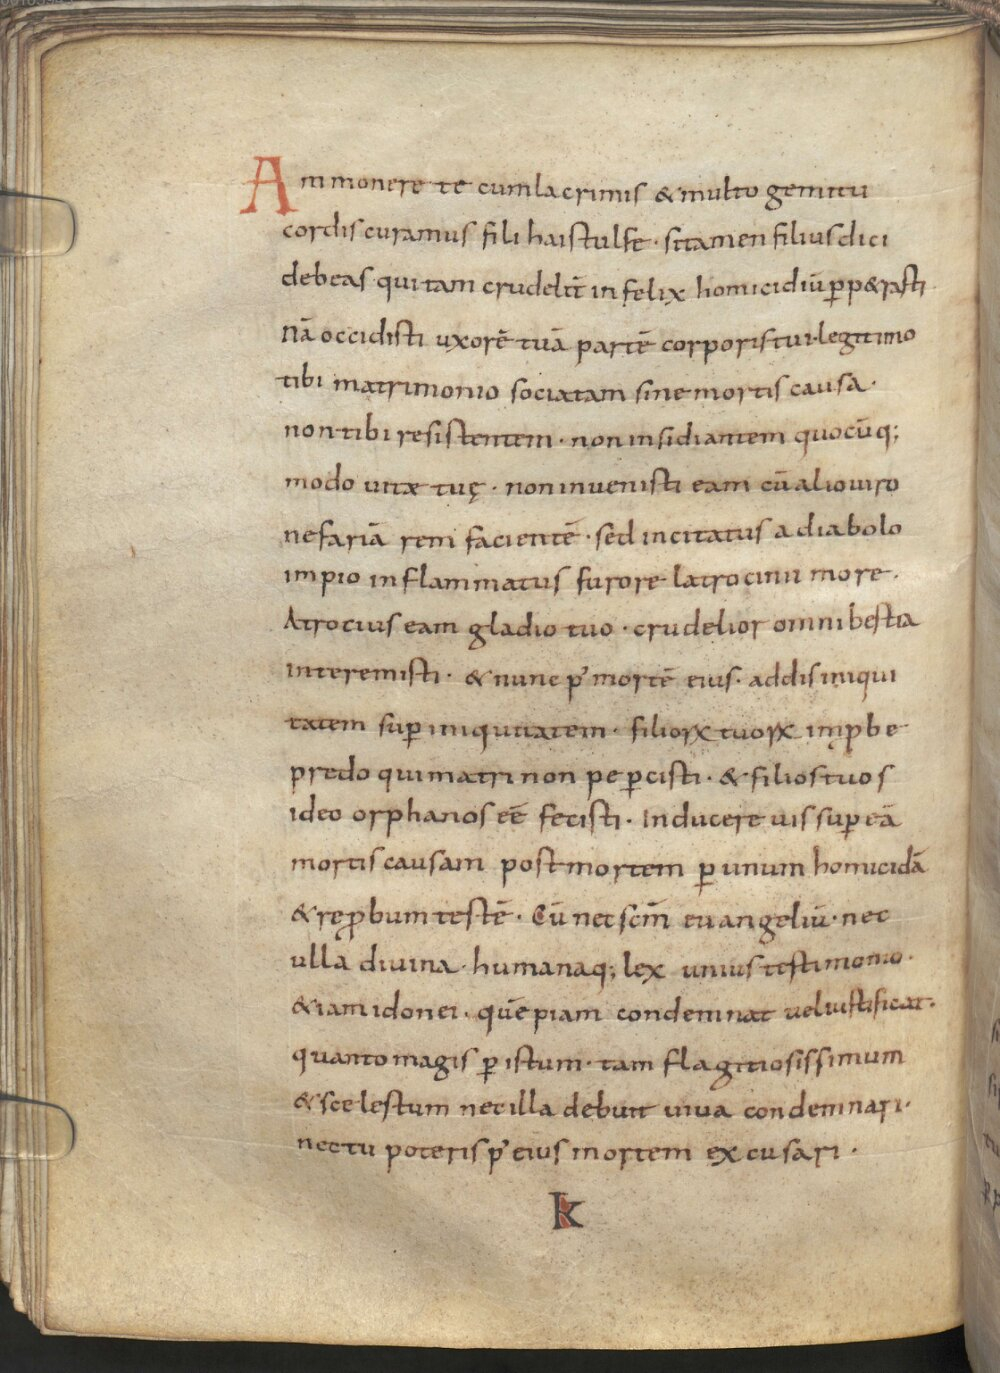 Ammonere te cum lacrimis & multo gemitu
cordis curamus fili haistulfe · si tamen filius dici
debeas qui tam crudelit̄ infelix homicidiū ꝑp&rasti
Nā occidisti uxorē tuā partē corporis tui · legitimo
tibi matrimonio sociatam sine mortis causa ·
non tibi resistentem · non insidiantem quocūq;
modo uitæ tuę · non inuenisti eam cū alio uiro
nefariā rem facientē · sed incitatus a diabolo
impio inflammatus furore latrocinii more ·
Atrocius eam gladio tuo · crudelior omni bestia
interemisti · & nunc p' mortē eius · addis iniqui
tatem suꝑ iniquitatem · filioꝝ tuoꝝ imꝓbe
predo qui matri non peꝑcisti · & filios tuos
ideo orphanos eē fecisti · Inducere uis suꝑ eā
mortis causam post mortem ꝑ unum homicidā
& reꝓbum testē · Cū nec scm̄ euangeliū · nec
ulla diuina · humanaq; lex unius testimonio ·
& iam idonei · quēpiam condemnat uel iustificat ·
quanto magis ꝑ istum · tam flagitiosissimum
& scelestum nec illa debuit uiua condemnari ·
nec tu poteris p' eius mortem excusari ·
k